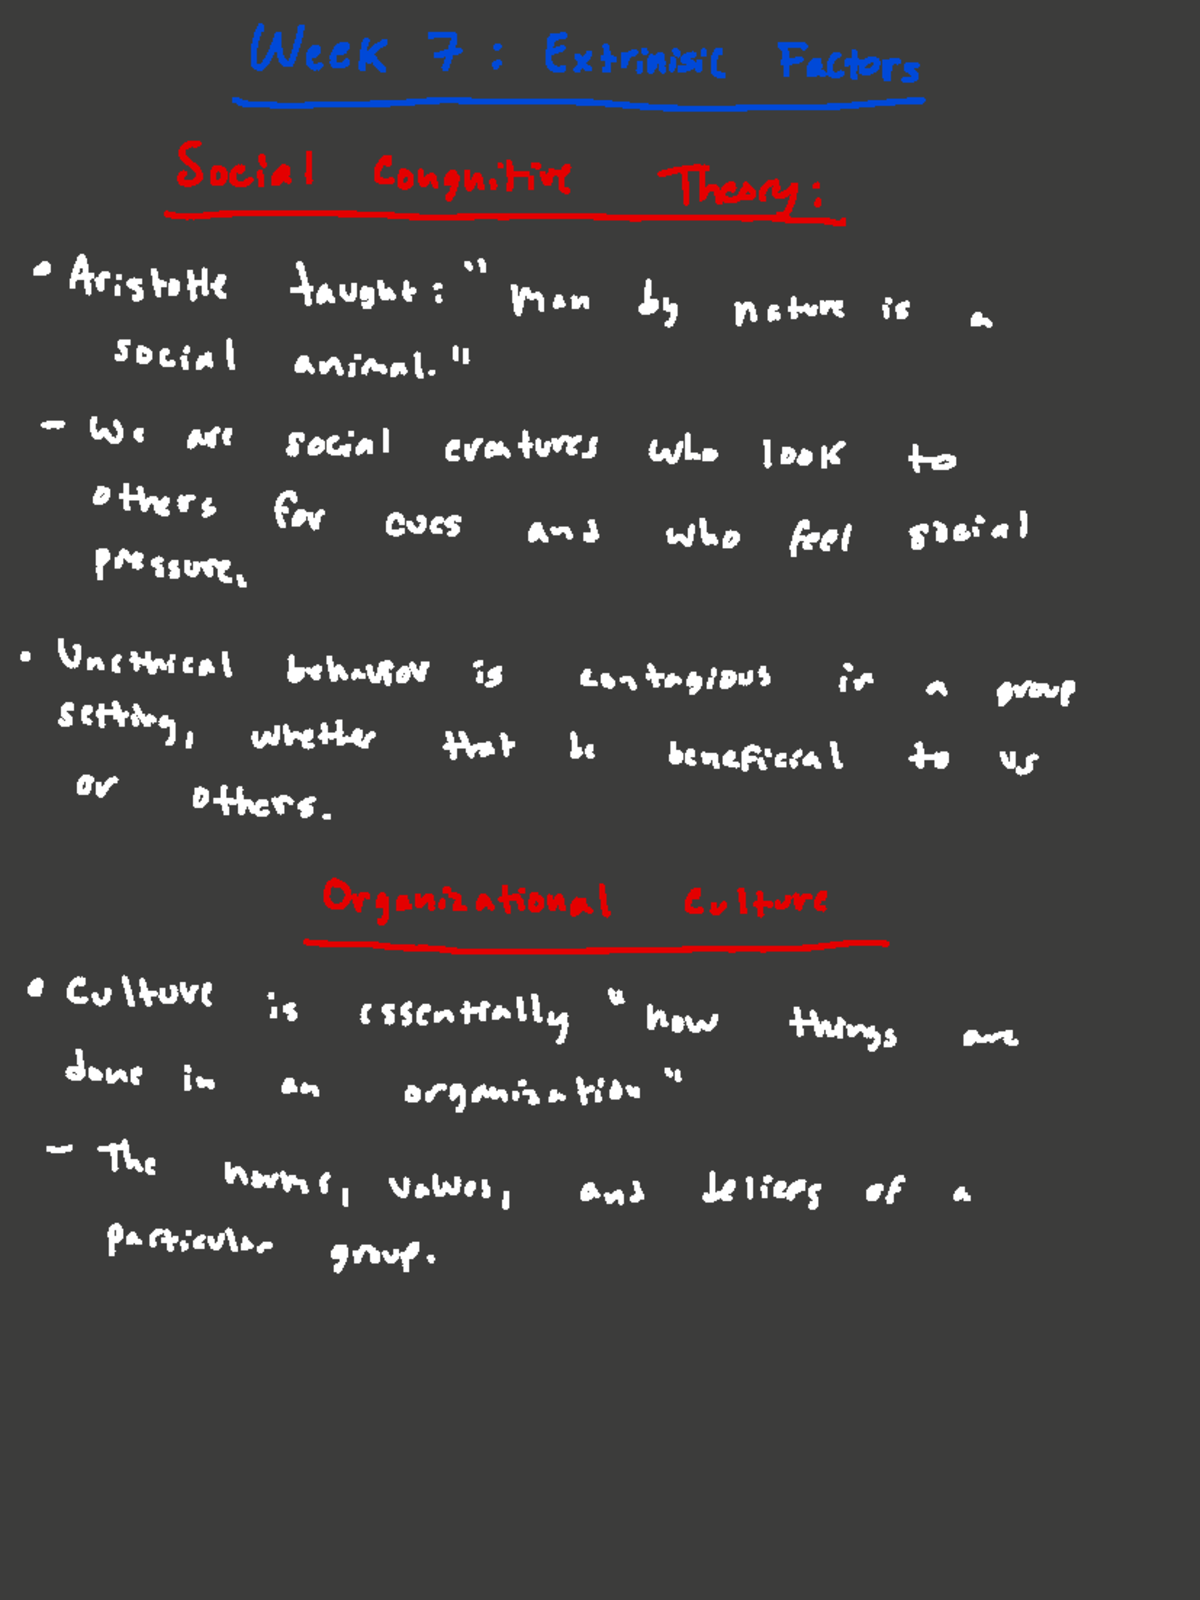 Week 7: Extrinisic Factors
Social Congnitive Theory:
• Aristotle taught: "man by nature is a
social animal."
- We are social creatures who look to
others for cues and who feel social
pressure.
• Unethical behavior is contagious in a group
setting, whether that be beneficial to us
or others.
Organizational Culture
• Culture is essentially "how things are
done in an organization"
- The norms, values, and beliefs of a
particular group.